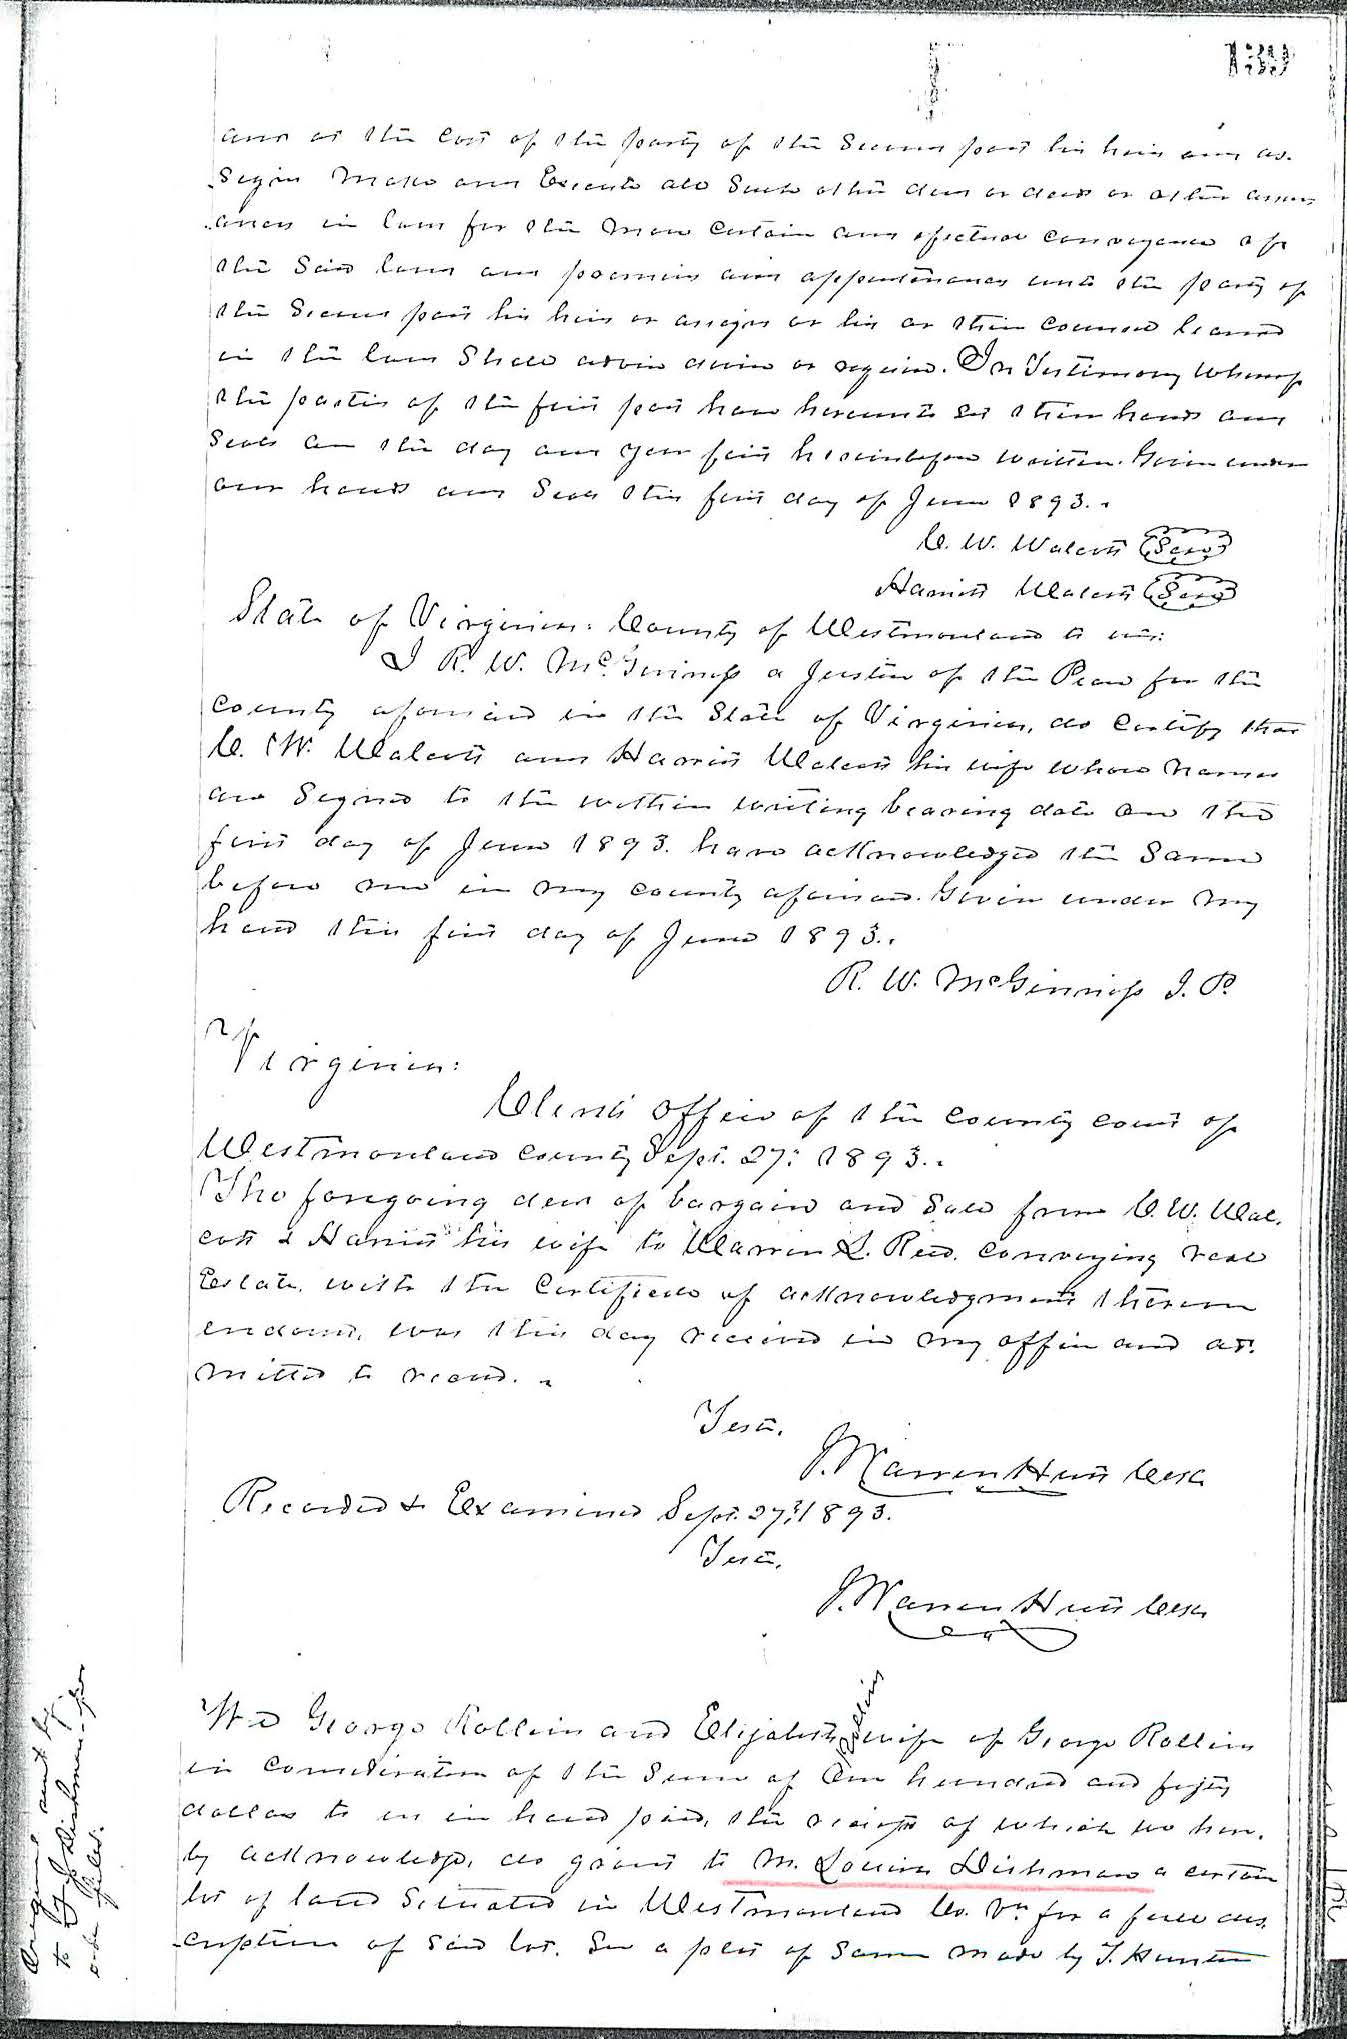 139
and at the cost of the party of the second part his heirs and as-
signs make and Execute all such other deed or deeds or other assur-
ances in law for the more certain and efectual conveyance of
the said land and premises and appurtenances unto the party of
the Second part his heirs or assigns or his or their counsel learned
in the law Shall advise devise or require. In Testimony whereof
the parties of the first part have hereunto set their hands and
seals on the day and year first hereinbefore written. Given under
our hands and seals this first day of June 1893.
C. W. Walcott (Seal)
Harriett Walcott (Seal)
State of Virginia: County of Westmoreland to wit:
I R. W. McGinniss a Justice of the Peace for the
county aforesaid in the State of Virginia, do certify that
C. W. Walcott and Harriett Walcott his wife whose names
are Signed to the within writing bearing date on the
first day of June 1893. have acknowledged the same
before me in my county aforesaid. Given under my
hand this first day of June 1893.
R. W. McGinniss J. P.
Virginia:
Clerk's office of the county court of
Westmoreland county Sept. 27: 1893.
The foregoing deed of bargain and sale from C. W. Wal-
cott & Harriett his wife to Warren L. Reed. conveying real
Estate. with the Certificate of acknowledgment thereon
endorsed, was this day received in my office and ad-
mitted to record.
Teste,
J. Warren Hutt Clerk
Recorded & Examined Sept. 27: 1893.
Teste,
J. Warren Hutt Clerk
We George Rollins and Elizabeth Rollins wife of George Rollins
in consideration of the sum of One hundred and fifty
dollars to us in hand paid, the receipt of which we here-
by acknowledge, do grant to M. Louisa Dishman a certain
lot of land situated in Westmoreland Co. Va. for a full des-
cription of said lot. See a plat of same made by T. Hunter
Original sent by
to J. Dishman per
order filed.